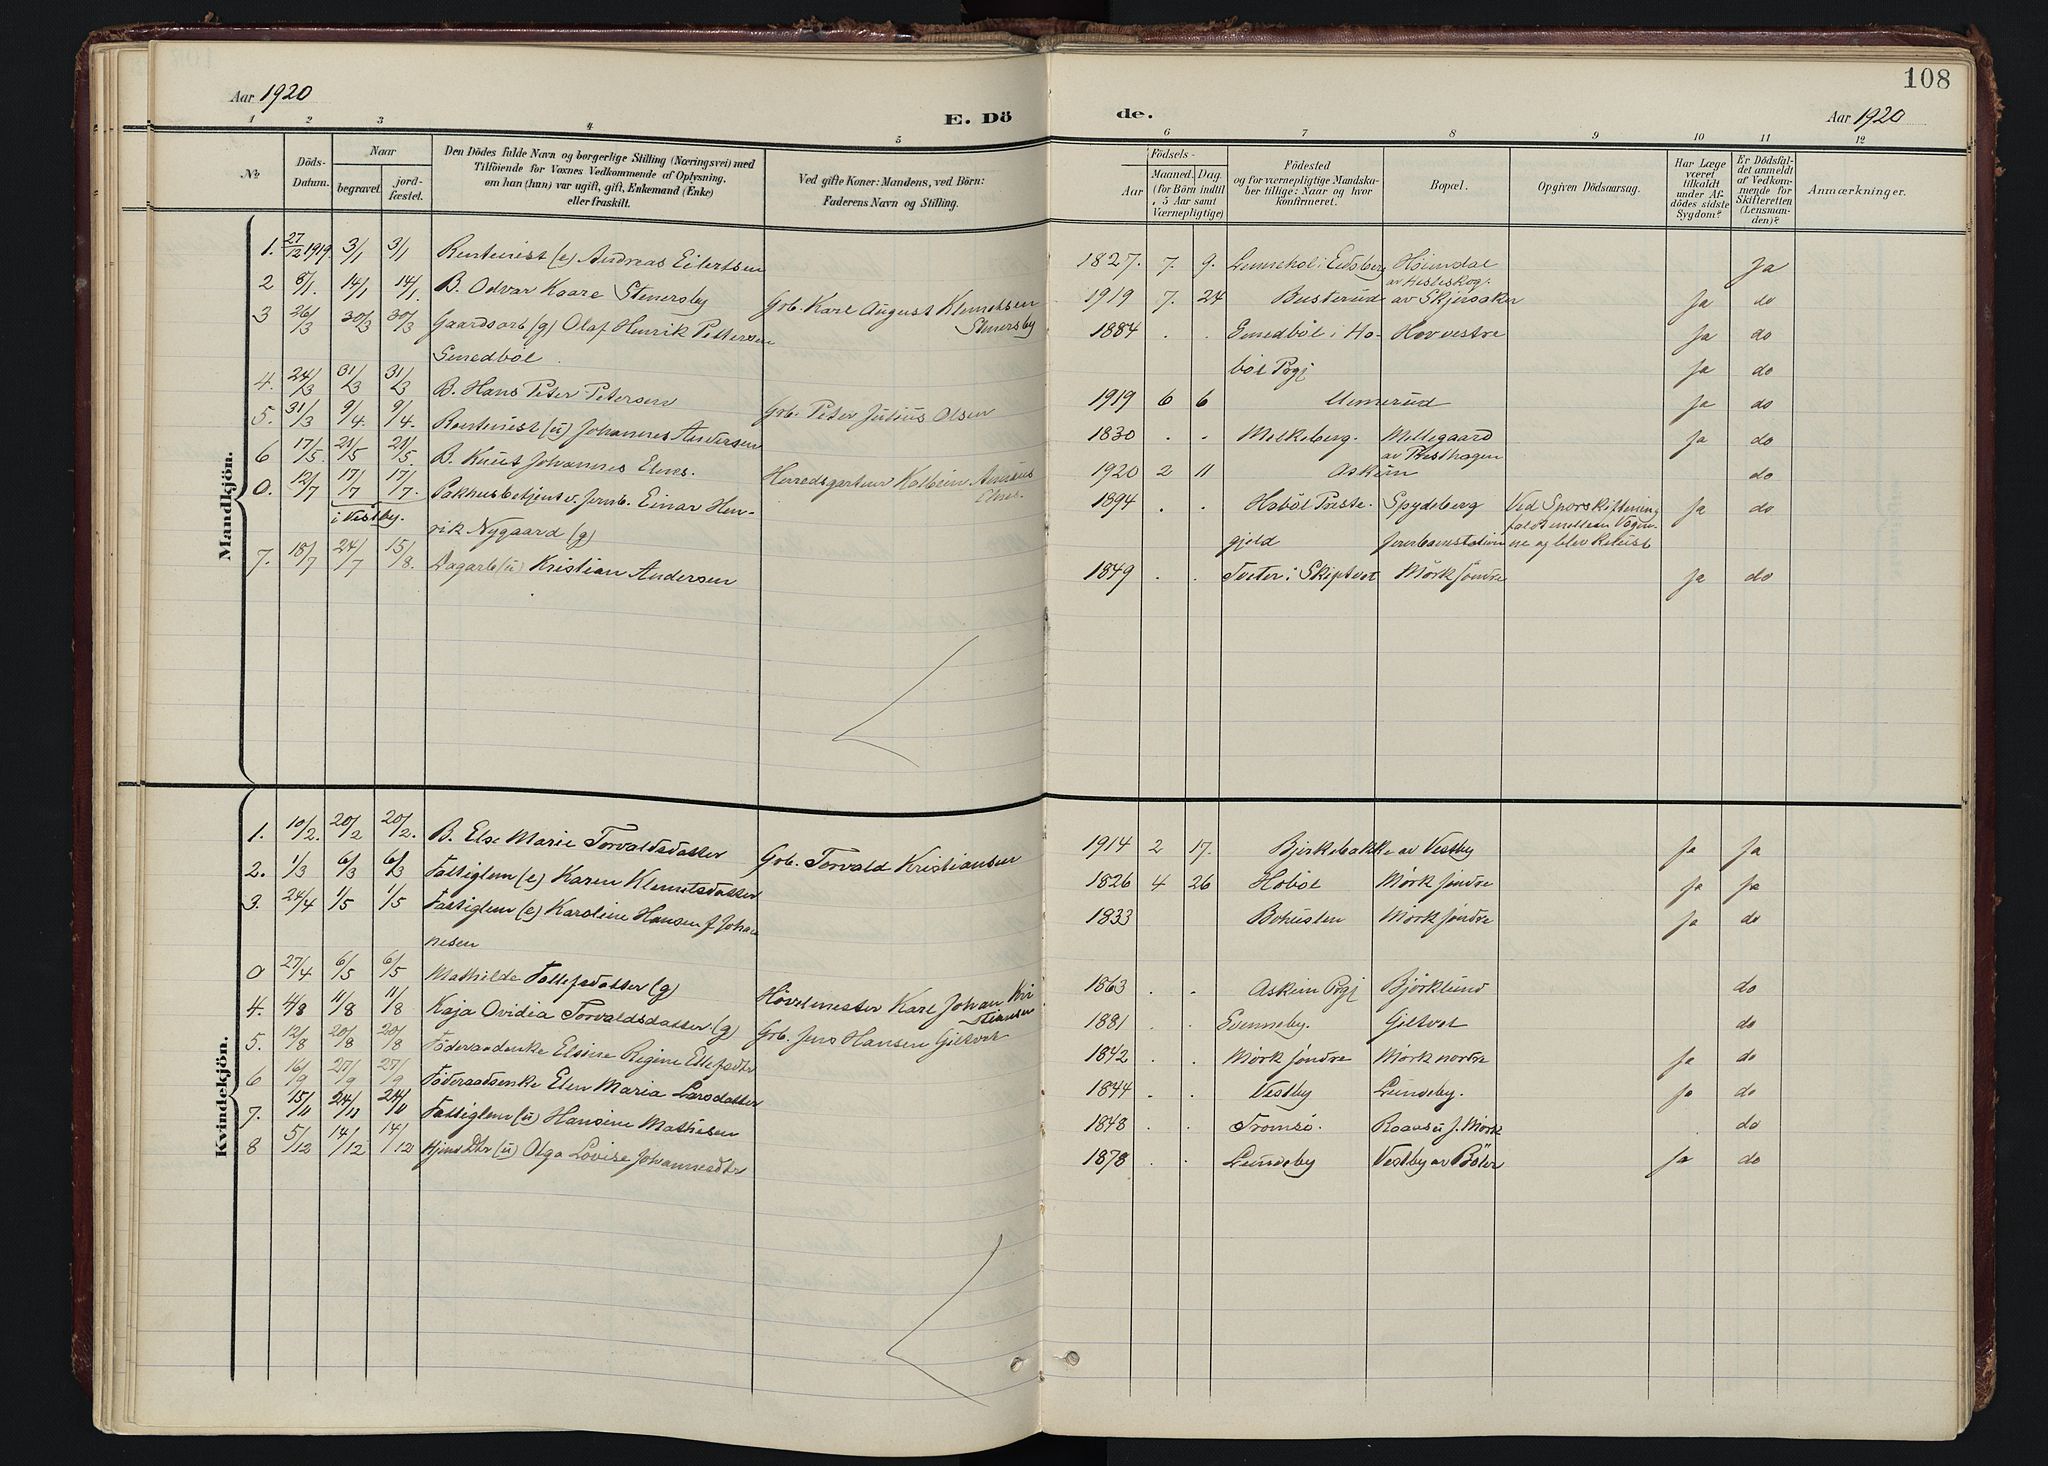 108
Aar 1920
E. Dö
de.
Aar 1920
1 2 3 4 5 6 7 8 9 10 11 12
No
Döds-
Datum.
Naar
begravet.
jord-
fæstet.
Den Dödes fulde Navn og borgerlige Stilling (Næringsvei) med
Tilföiende for Voxnes Vedkommende af Oplysning.
om han (hun) var ugift, gift, Enkemand (Enke)
eller fraskilt.
Ved gifte Koner: Mandens, ved Börn:
Faderens Navn og Stilling.
Födsels-
Aar
Maaned.
Dag.
(for Börn indtil
5 Aar samt
Værnepligtige)
Födested
og for værnepligtige Mandska-
ber tillige: Naar og hvor
konfirmeret.
Bopæl.
Opgiven Dödsaarsag.
Har Læge
været
tilkaldt
under Af-
dödes sidste
Sygdom?
Er Dödsfal-
det anmeldt
af Vedkom-
mende for
Skifteretten
(Lensman-
den)?
Anmærkninger.
Mandkjön.
1. 27/12 1919 3/1 3/1 Rentenist (e) Andreas Eilertsen 1827. 7. 9. i Eidsberg Høiendal Ja
2 8/1. 14/1 14/1. B. Odvar Kaare Stenersby Grb. Karl August Klemetsen 1919 7. 24 Busterud av Skjersaker Ja do
Stenersby
3 26/3 30/3 30/3 Gaardsarb (g) Olaf Henrik Pettersen 1884 . . Smedbøl i Ho- Hov vestre Ja do
Smedbøl bøl Pgj Ja do
4. 24/3 31/3 31/3 B. Hans Peter Petersen Grb. Peter Julius Olsen 1919 6 6 Unnerud Ja do
5. 31/3 9/4. 9/4. Rentenist (u) Johannes Andersen 1830 . . Melkeberg. Mellegaard Ja do
av Presthagen
6 17/5. 21/5 21/5 B. Knut Johannes Elnes. Herredsgartner Kolbein Elnes. 1920 2 11 Askim do
0. 12/7 17/7 17/7. Pakhusbetjent v. Jernb. Einar Hen- 1894 . . Hobøl Preste- Spydeberg Ved Sporskiftening Ja do
i Vestby.
rik Nygaard (g) gjeld Jernbanestation
7. 18/7 24/7 15/8. Dagarb (u) Kristian Andersen 1849 . . Tveter i Skiptvet Mørk søndre Ja do
Kvindekjön.
1. 10/2. 20/2 20/2. B. Else Marie Torvaldsdatter Grb. Torvald Kristiansen 1914 2 17. Bjerkebakke av Vestby Ja Ja
2. 1/3 6/3 6/3 Fattiglem (e) Karen Klemetsdatter 1826 4 26 Hobøl Mørk søndre Ja Ja
3. 24/4 1/5 1/5 Fattiglem (e) Karoline Hansen f Johan 1833 Bohuslen Mørk søndre Ja do
nesen
0 27/4 6/5 6/5 Mathilde (g) Hovelmester Karl Johan Kri 1863 . . Askim Pgj Bjørklund do
stiansen
4. 4/8 11/8 11/8 Kaja Ovidia Torvaldsdatter (g) Grb. Jens Hansen Giltvet 1881 . . Svenneby. Giltvet do
5. 12/8 20/8 20/8 Føderaadenke Elsine Regine 1842 . . Mørk søndre Mørk nordre Ja do
6 16/9 27/9 27/9 Føderaadsenke Elen Maria Larsdatter 1844 . . Vestby Lundeby. Ja do
7. 15/11 24/11 24/11 Fattiglem (u) Hansine Mathisen 1848 . . Tromsø. do
8 5/12 14/12 14/12 Hjemd Dtr (u) Olga Lovise Johannesdtr 1878 . . Lundeby Vestby av Bøler Ja do